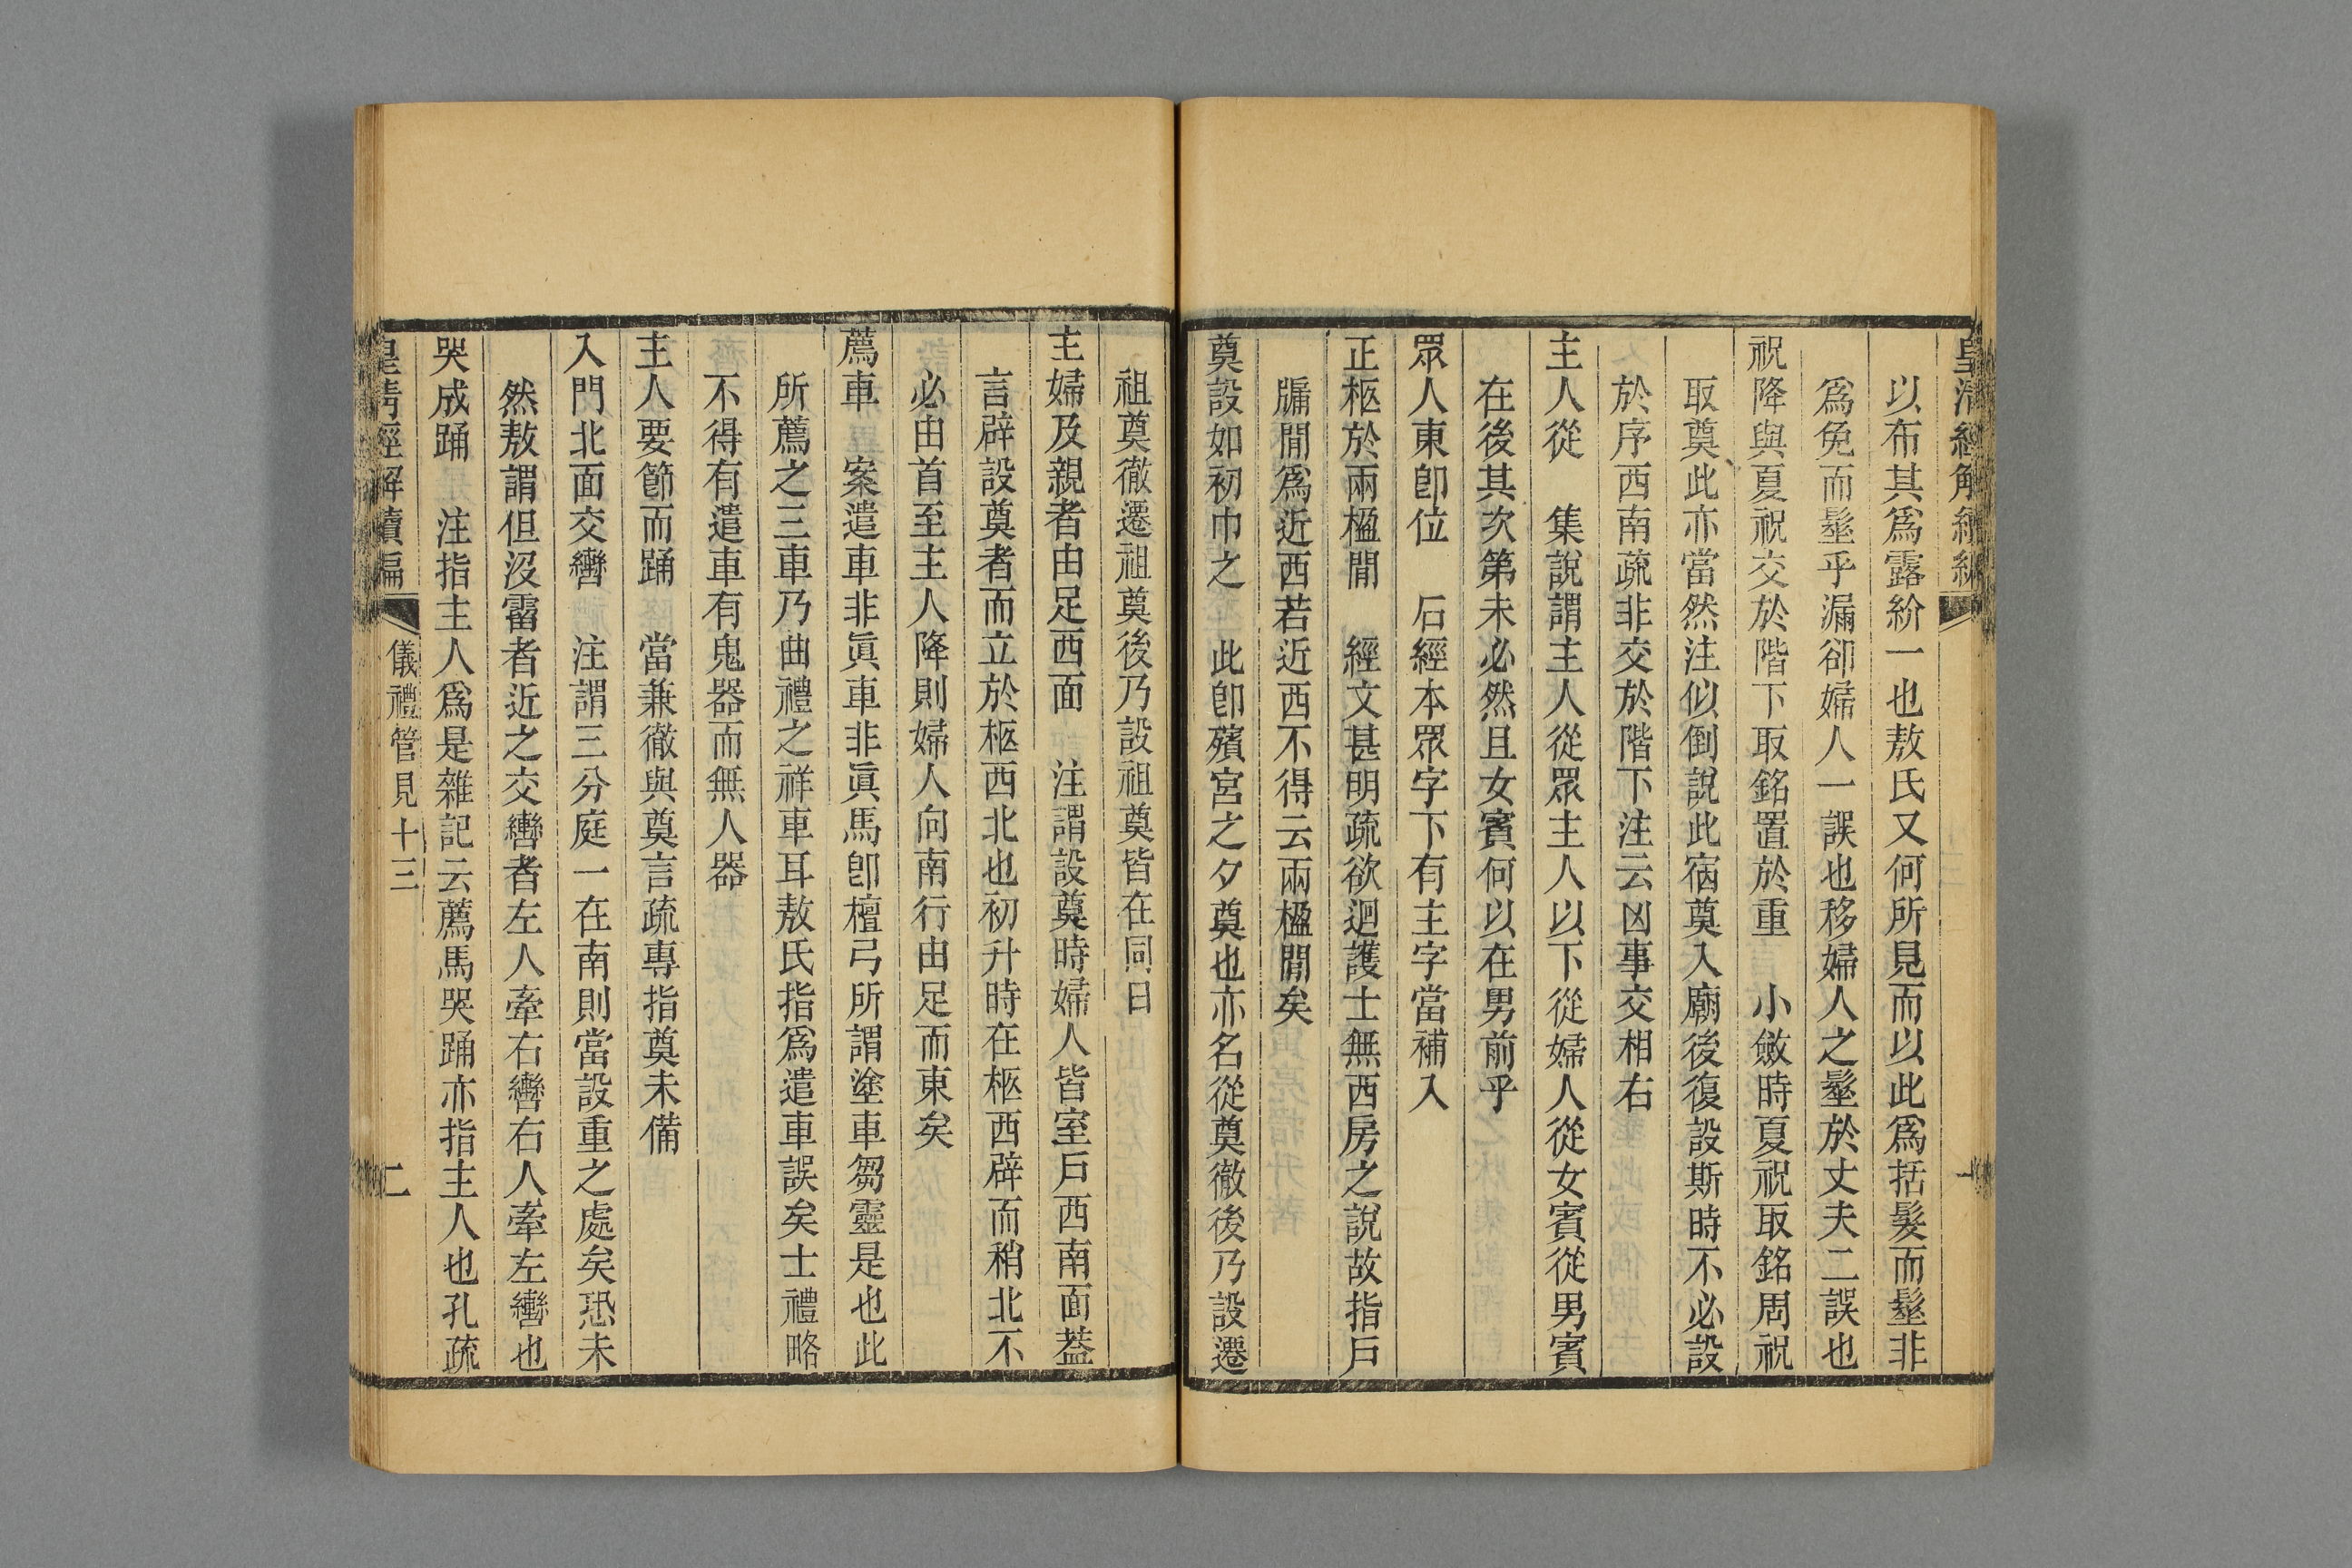 皇清經解續編
一
以布其爲露紒一也敖氏又何所見而以此爲括髮而髽非
爲免而髽乎漏卻婦人一誤也移婦人之髽於丈夫二誤也
祝降與夏祝交於階下取銘置於重　小斂時夏祝取銘周祝
取奠此亦當然注似倒說此宿奠入廟後復設斯時不必設
於序西南疏非交於階下注云凶事交相右
主人從　集說謂主人從眾主人以下從婦人從女賓從男賓
在後其次第未必然且女賓何以在男前乎
眾人東卽位　石經本眾字下有主字當補入
正柩於兩楹閒　經文甚明疏欲迴護士無西房之說故指戶
牖閒爲近西若近西不得云兩楹閒矣
奠設如初巾之　此卽殯宮之夕奠也亦名從奠徹後乃設遷
祖奠徹遷祖奠後乃設祖奠皆在同日
主婦及親者由足西面　注謂設奠時婦人皆室戶西南面葢
言辟設奠者而立於柩西北也初升時在柩西辟而稍北不
必由首至主人降則婦人向南行由足而東矣
薦車　案遣車非眞車非眞馬卽檀弓所謂塗車芻靈是也此
所薦之三車乃曲禮之祥車耳敖氏指爲遣車誤矣士禮略
不得有遣車有鬼器而無人器
主人要節而踊　當兼徹與奠言疏專指奠未備
入門北面交轡　注謂三分庭一在南則當設重之處矣恐未
然敖謂但沒霤者近之交轡者左人牽右轡右人牽左轡也
哭成踊　注指主人爲是雜記云薦馬哭踊亦指主人也孔疏
皇清經解續編
儀禮管見十三
二